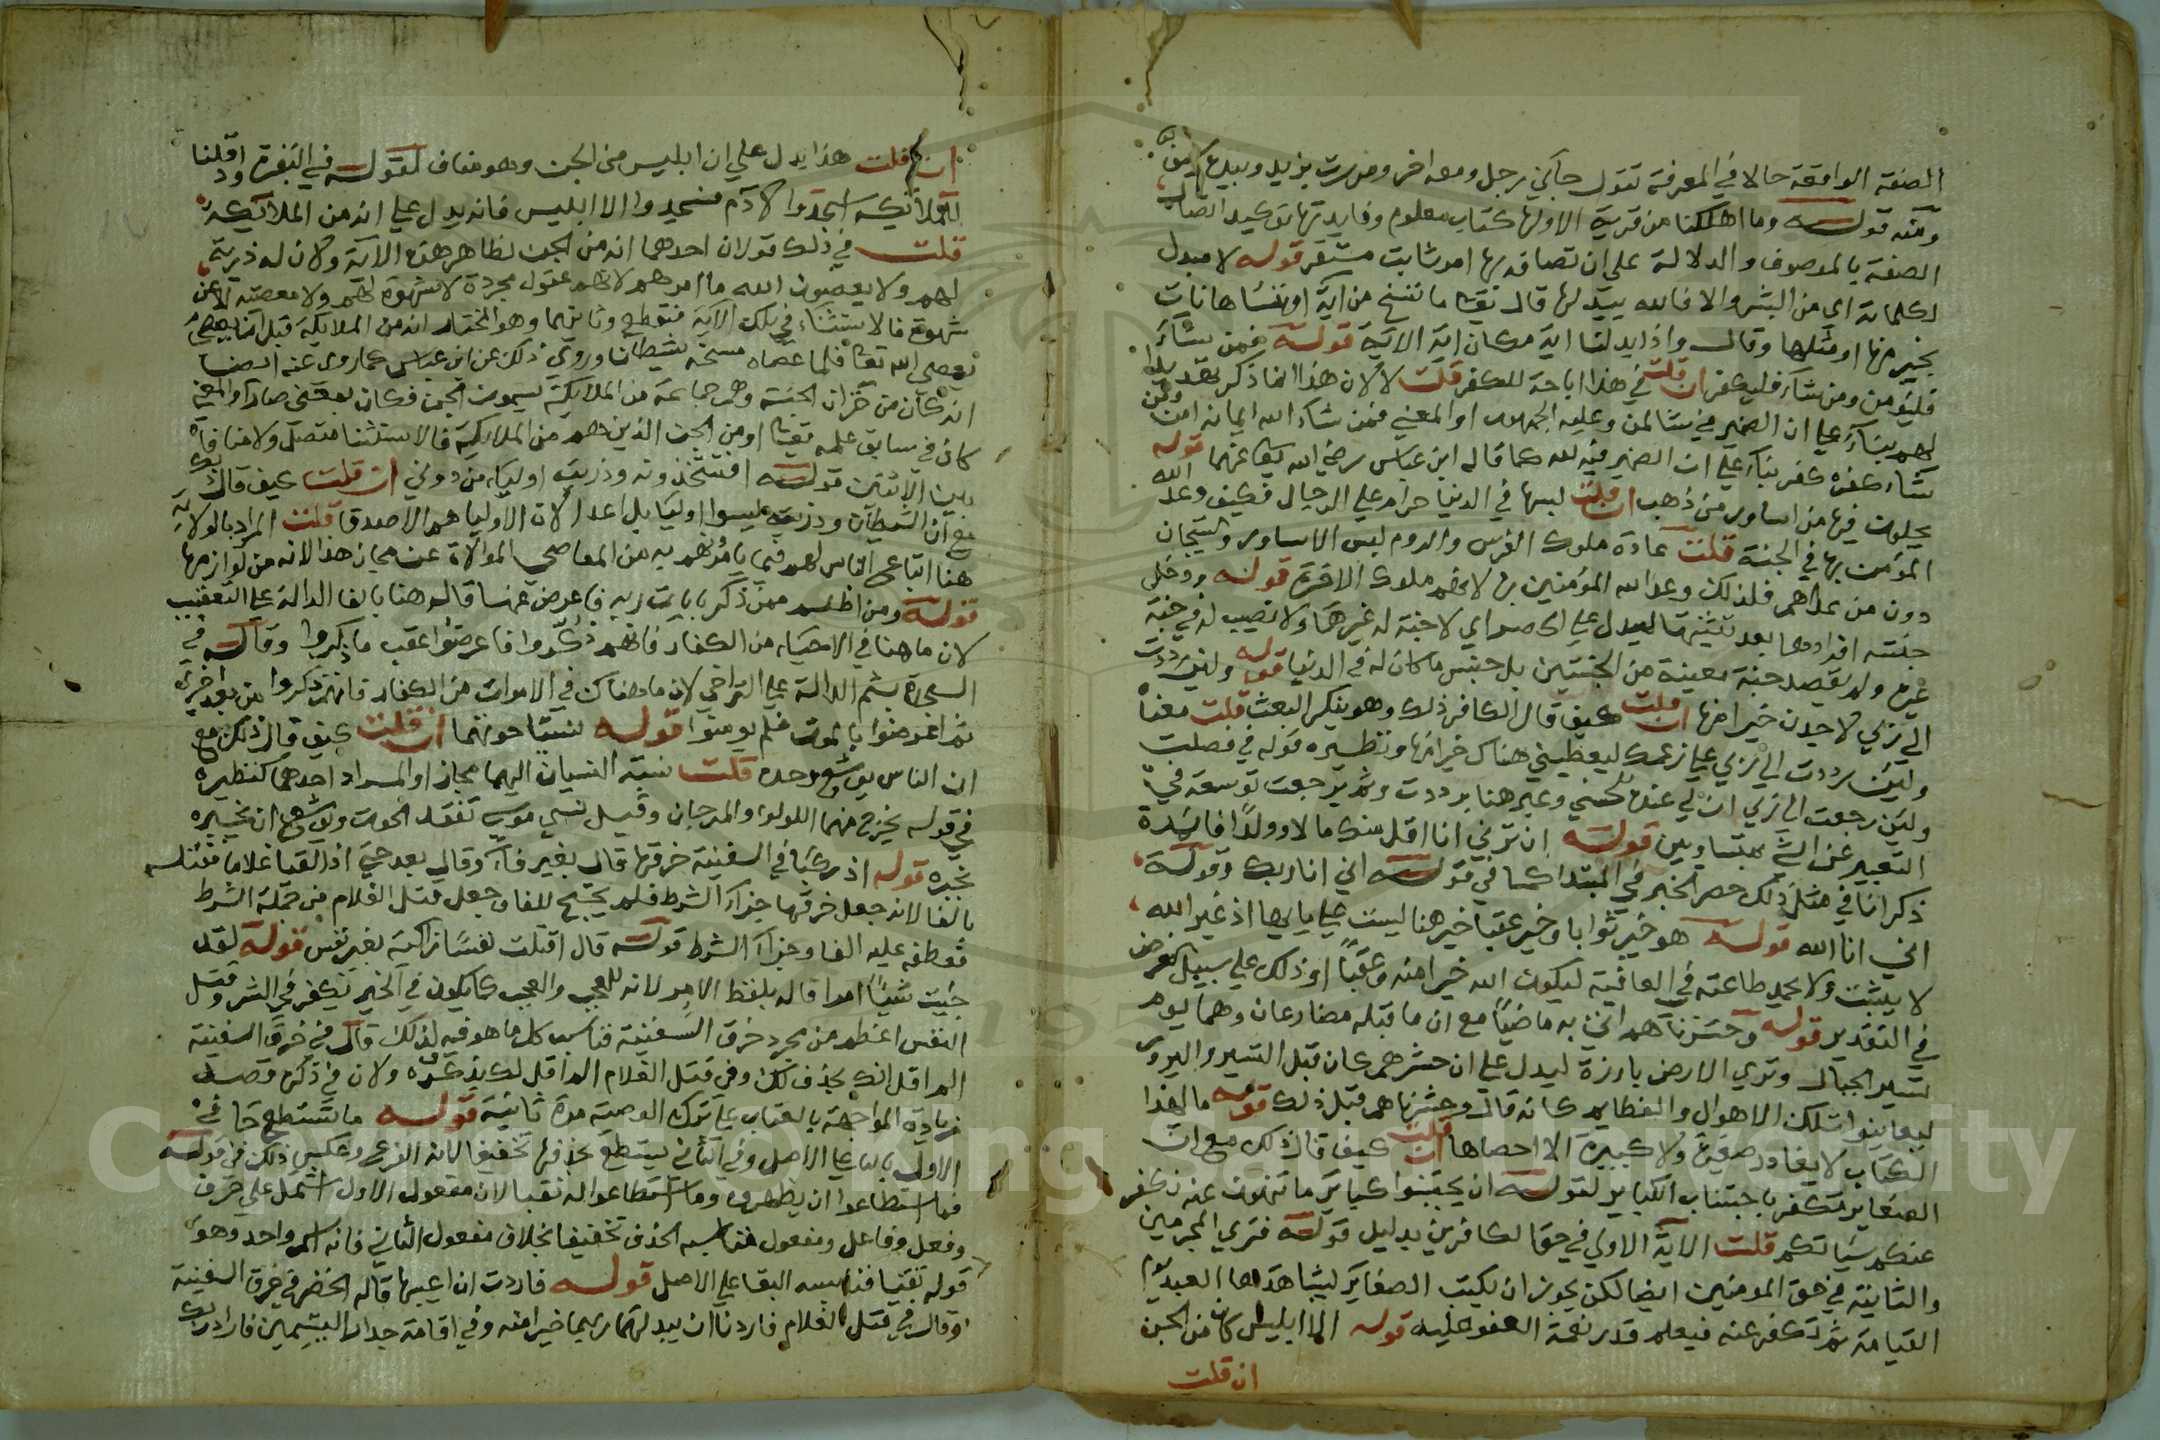 الصفة الواقعة حالا في المعرفة تقول جاني رجل ومعه اخر ومررت بزيد وبيده سيف
ومنه قوله وما اهلكنا من قرية الا ولها كتاب معلوم وفايدتها توكيد اتصال
الصفة بالموصوف والدلالة على ان اتصافه بها امر ثابت مستقر قوله لا مبدل
لكلماته اي من البشر والا فالله يبدلها قال تعالى ما ننسخ من آية او ننسأها نات
بخير منها او مثلها وقال واذا بدلنا اية مكان اية الاية قوله فمن شاء
فليؤمن ومن شاء فليكفر ان قلت في هذا اباحة للكفر قلت لا لان هذا انما ذكر تهديدا
لهم بناء على ان الضمير في شا لمن وعليه الجمهور او المعنى فمن شاء الله ايمانه امن ومن
شاء كفره كفر بناء على ان الضمير فيه لله كما قاله ابن عباس رضي الله تعالى عنهما قوله
يحلون فيها من اساور من ذهب ان قلت لبسها في الدنيا حرام على الرجال فكيف وعد الله
المؤمنين بها في الجنة قلت عادة ملوك الفرس والروم لبس الاساور والتيجان
دون من عداهم فلذلك وعد الله المؤمنين بها لانهم ملوك الاخرة قوله ودخل
جنته افردها بعد تثنيتها ليدل على الحصر اي لا جنة له غيرها ولا نصيب له في جنة
غيره ولم يقصد جنة معينة من الجنتين بل جنس ما كان له في الدنيا قوله ولئن رددت
الى ربي لاجدن خيرا منها ان قلت كيف قال الكافر ذلك وهو ينكر البعث قلت معناه
ولئن رددت الى ربي على زعمك ليعطيني هناك خيرا منها ونظيره قوله في فصلت
ولئن رجعت الى ربي ان لي عنده للحسنى وعبر هنا برددت وثم برجعت توسعة في
التعبير عن الشي بمتساويين قوله ان ترني انا اقل منك مالا وولدا فايدة
ذكر انا في مثل ذلك حصر الخبر في المبتدا كما في قوله اني انا ربك وقوله
انني انا الله قوله هو خير ثوابا وخير عقبا خير هنا ليست على بابها اذ غير الله
لا يثبت ولا يحمد طاعته في العاقبة ليكون الله خيرا منه وعقبا او ذلك على سبيل الفرض
في التقدير قوله وحشرناهم اتي به ماضيا مع ان ما قبله مضارعان وهما يوم
نسير الجبال وترى الارض بارزة ليدل على ان حشرهم كان قبل التسيير والبروز
ليعاينوا تلك الاهوال والعظايم كانه قال وحشرناهم قبل ذلك قوله ما لهذا
الكتاب لا يغادر صغيرة ولا كبيرة الا احصاها ان قلت كيف قال ذلك مع ان
الصغاير تكفر باجتناب الكباير لقوله ان تجتنبوا كباير ما تنهون عنه نكفر
عنكم سياتكم قلت الآية الاولى في حق الكافرين بدليل قوله فترى المجرمين
والثانية في حق المومنين ايضا لكن يجوز ان يكتب الصغاير ليشاهدها العبد يوم
القيامة ثم تكفر عنه فيعلم قدر نعمة العفو عليه قوله الا ابليس كان من الجن
ان قلت
ان قلت هذا يدل على ان ابليس من الجن وهو مناف لقوله في البقرة واذ قلنا
للملائكة اسجدوا لآدم فسجدوا الا ابليس فانه يدل على انه من الملائكة
قلت في ذلك قولان احدهما انه من الجن لظاهر هذه الآية ولان له ذرية
لهم ولا يعصون الله ما امرهم لانهم عقول مجردة لا شهوة لهم ولا معصية الا عن
شهوة فالاستثناء في تلك الآية منقطع وثانيهما وهو المختار انه من الملايكة قبل ان
يعصي الله تعالى فلما عصاه مسخه شيطانا وروي ذلك عن ابن عباس كما روي عنه ايضا
انه كان من خزان الجنة وهم جماعة من الملايكة يسمون الجن فكان بمعنى صار او المعنى
كان في سابق علمه تعالى او من الجن الذين هم من الملايكة فالاستثنا متصل ولا منافاة
بين الآيتين قوله افتتخذونه وذريته اولياء من دوني ان قلت كيف قال ذلك
مع ان الشيطان وذريته ليسوا اوليا بل اعدا لان الاوليا هم الاصدقا قلت المراد بالولاية
هنا اتباع الناس لهم فيما يامرونهم به من المعاصي الموالاة عن مجاز هذا لانه من لوازمها
قوله ومن اظلم ممن ذكر بايات ربه فاعرض عنها قاله هنا بالفا الدالة على التعقيب
لان ما هنا في الاحياء من الكفار فانهم ذكروا فاعرضوا عقب ما ذكروا وقاله في
السجدة بثم الدالة على التراخي لان ما هناك في الاموات من الكفار فانهم ذكروا مرة بعد اخرى
ثم اعرضوا بالموت فلم يومنوا قوله نسيا حوتهما ان قلت كيف قال ذلك مع
ان الناس يوشع وحده قلت نسبة النسيان اليهما مجاز او المراد احدهما كنظيره
في قوله يخرج منهما اللولو والمرجان وقيل نسي موسى تفقد الحوت ويوشع ان يخبره
بخبره قوله اذ ركبا في السفينة خرقها قال بغير فآء وقال بعد حتى اذا لقيا غلاما فقتله
بالفا لانه جعل خرقها جزاء الشرط فلم يحتج للفا وجعل قتل الغلام من جملة الشرط
فعطفه عليه بالفا وجزاء الشرط قوله قال اقتلت نفسا زاكية بغير نفس قوله لقد
جئت شيئا امرا قاله بلفظ الامر لانه للعجب والعجب كما يكون في الخير يكون في الشر وقتل
النفس اعظم من مجرد خرق السفينة فناسب كل ما هو فيه لذلك قال في خرق السفينة
الم اقل انك بحذف لك وفي قتل الغلام الم اقل لك بذكره ولان في ذكره قصد
زيادة المواجهة بالعتاب على ترك الوصية مرة ثانية قوله ما لم تستطع جا في
الاول بالتاء على الاصل وفي الثاني تسطع بحذفها تخفيفا لانه الفرع وعكس ذلك في قوله
فما استطاعوا ان يظهروه وما استطاعوا له نقبا لان مفعول الاول اشتمل على حرف
وفعل وفاعل ومفعول فناسبه الحذف تخفيفا بخلاف مفعول الثاني فانه اسم واحد وهو
قوله نقبا فناسبه البقا على الاصل قوله فاردت ان اعيبها قاله الخضر في خرق السفينة
وقال في قتل الغلام فاردنا ان يبدلهما ربهما خيرا منه وفي اقامة جدار اليتيمين فاراد ربك